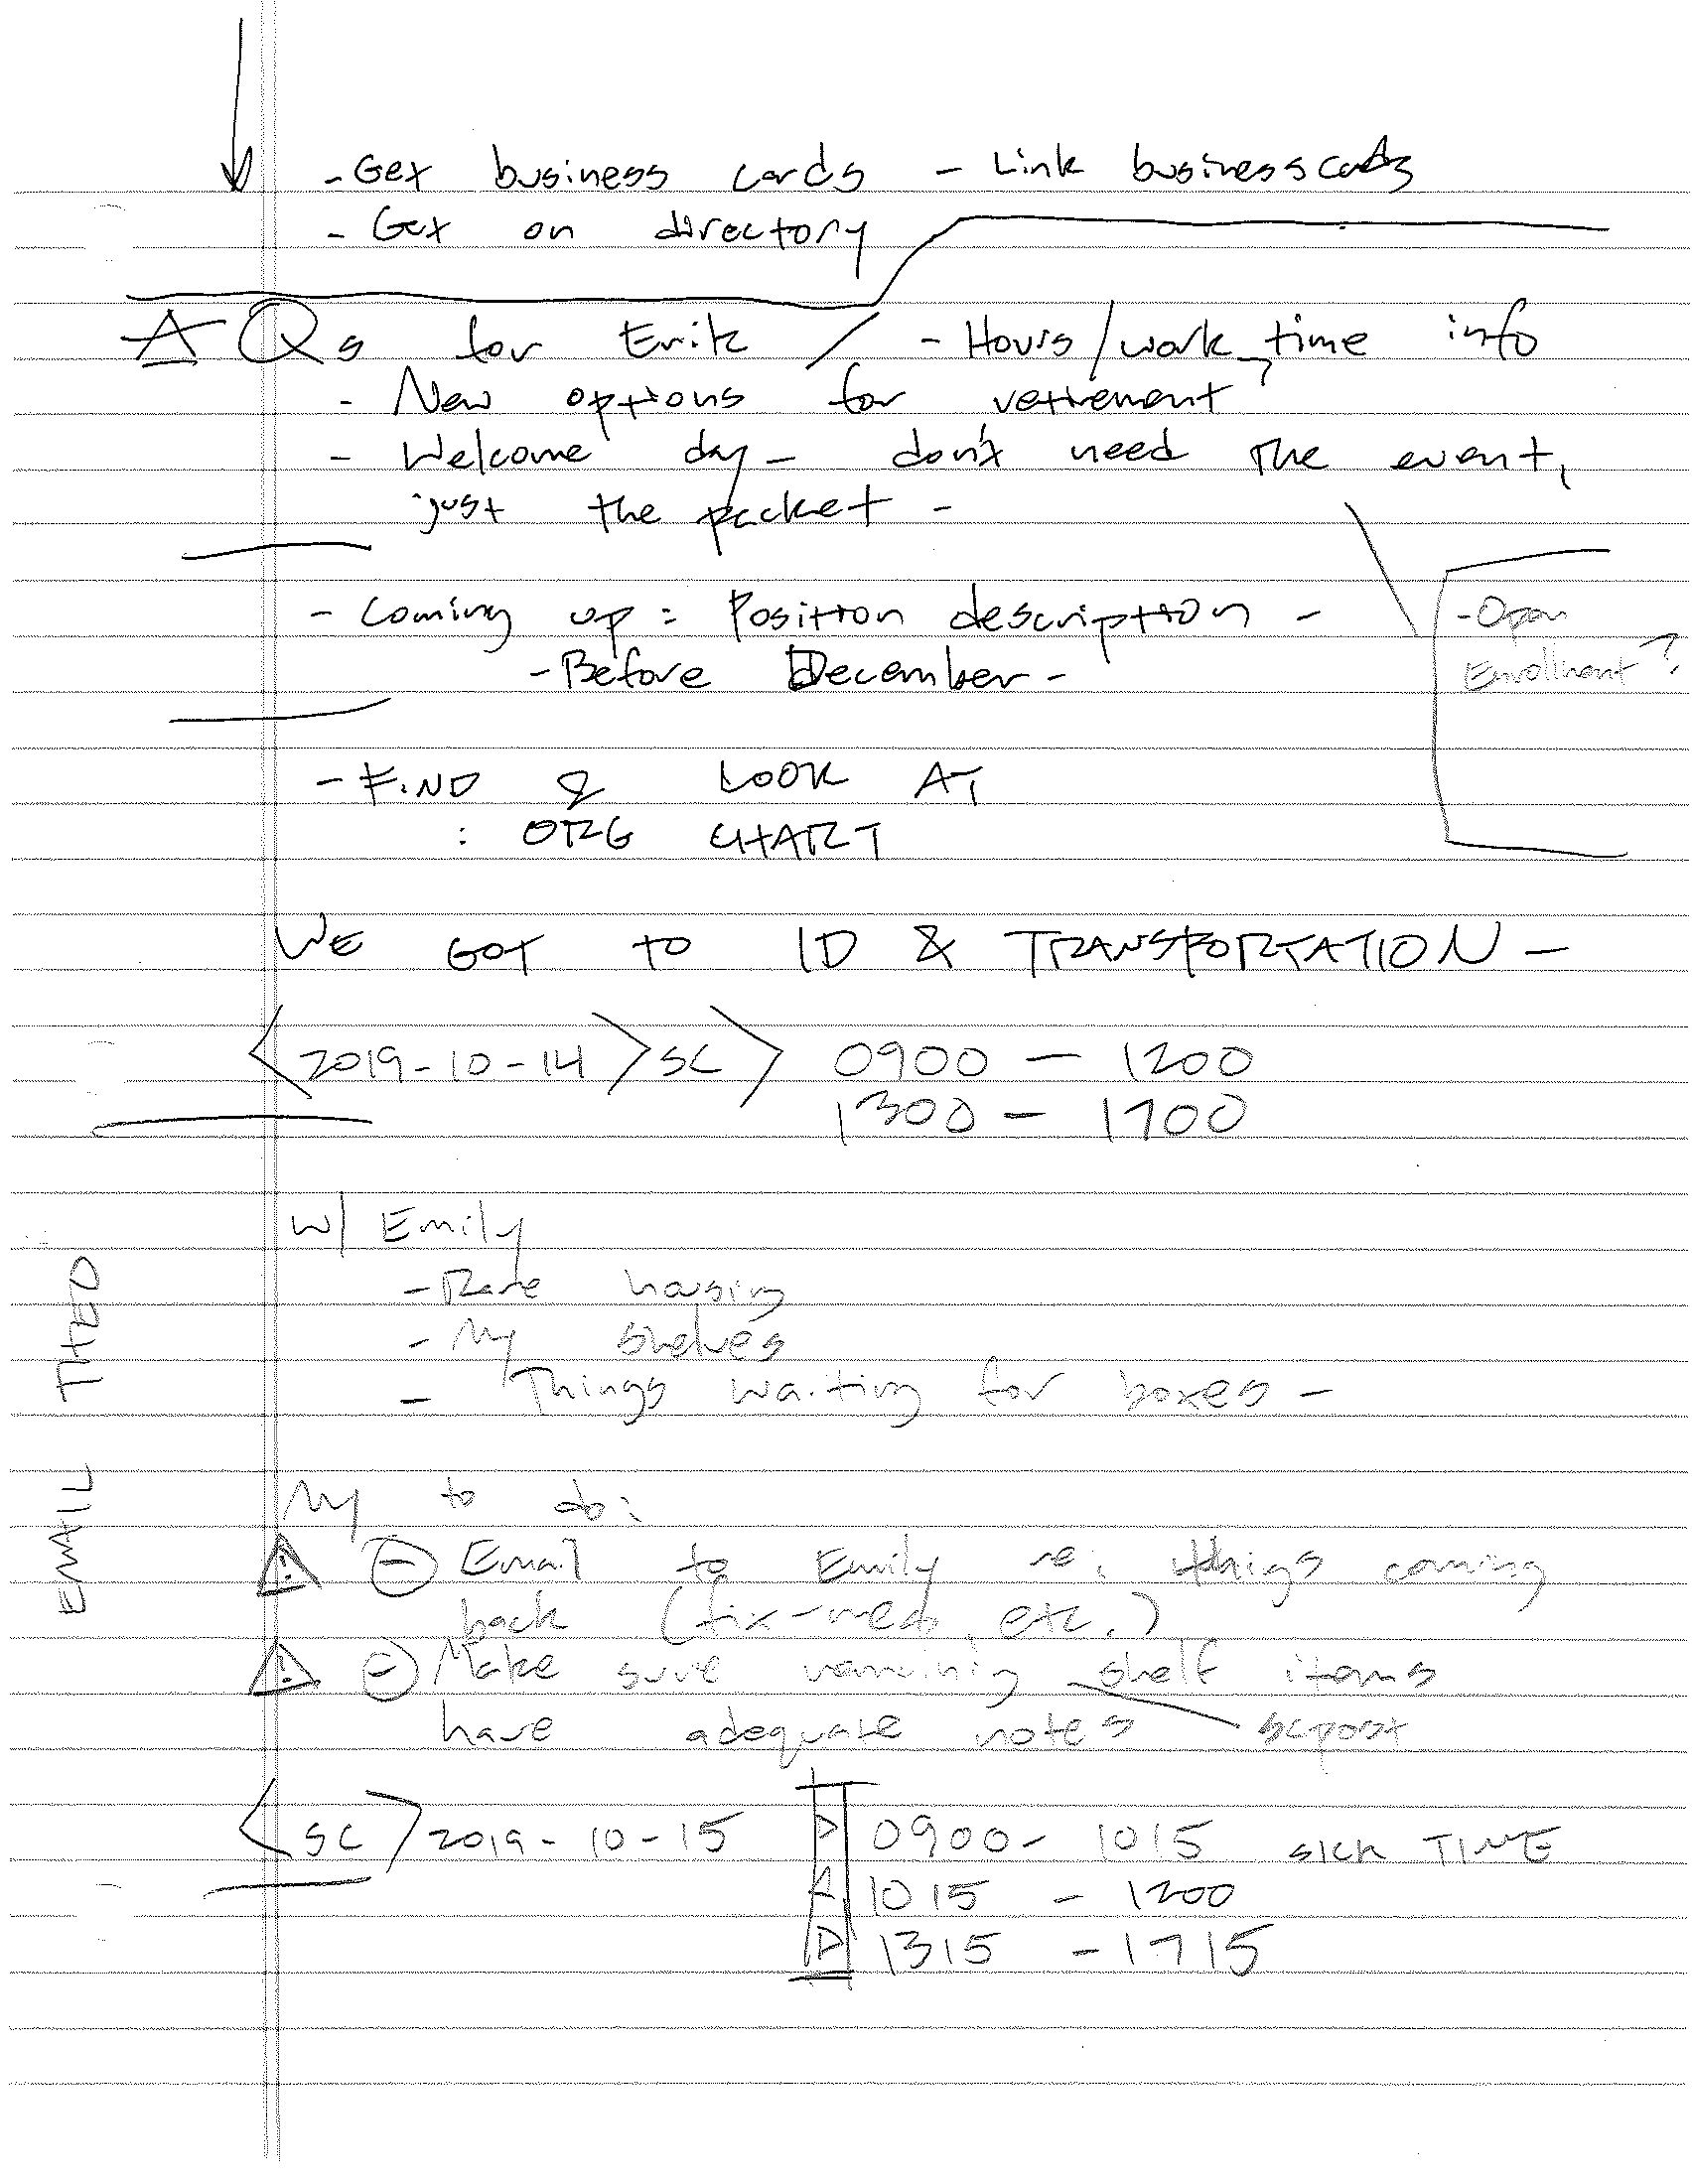 - Get business cards - Link business cards
- Get on directory
A Qs for Erik / - Hours/work time info
- New options for retirement
- Welcome day - don't need the event,
just the packet -
- Coming up: Position description -
- Before December -
- Open
Enrollment?
- FIND & LOOK AT
: ORG CHART
WE GOT TO ID & TRANSPORTATION -
<2019-10-14> SC> 0900 - 1200
1300 - 1700
W/ Emily
- Rare housing
- My shelves
- Things waiting for boxes -
EMAIL THEO
My to do:
- Email to Emily re: things coming
back (fix-mes, etc.)
- Make sure remaining shelf items
have adequate notes
<SC> 2019-10-15 0900 - 1015 SICK TIME
1015 - 1200
1315 - 1715